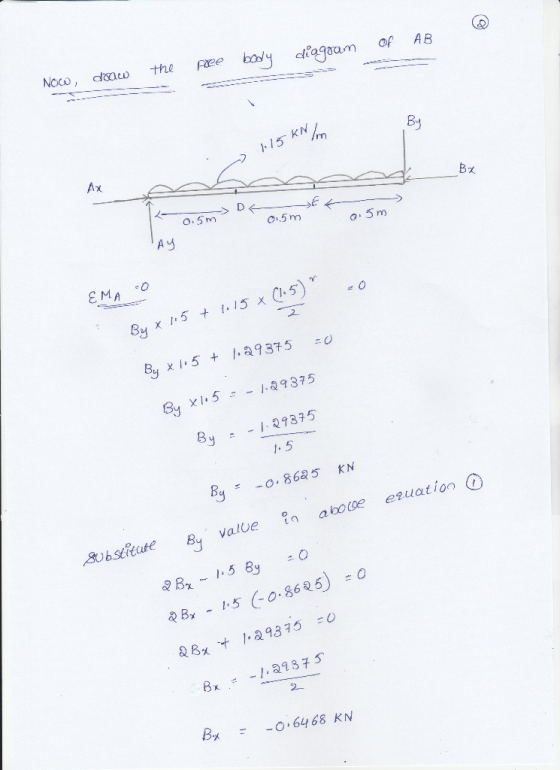 ②
Now, draw the free body diagram of AB
1.15 KN/m
By
Ax
Bx
0.5m D 0.5m E 0.5m
Ay
ΣMA =0
By × 1.5 + 1.15 × (1.5)²/2 =0
By × 1.5 + 1.29375 =0
By ×1.5 = -1.29375
By = -1.29375/1.5
By = -0.8625 KN
Substitute By value in above equation ①
2Bx - 1.5 By =0
2Bx - 1.5 (-0.8625) =0
2Bx + 1.29375 =0
Bx = -1.29375/2
Bx = -0.6468 KN